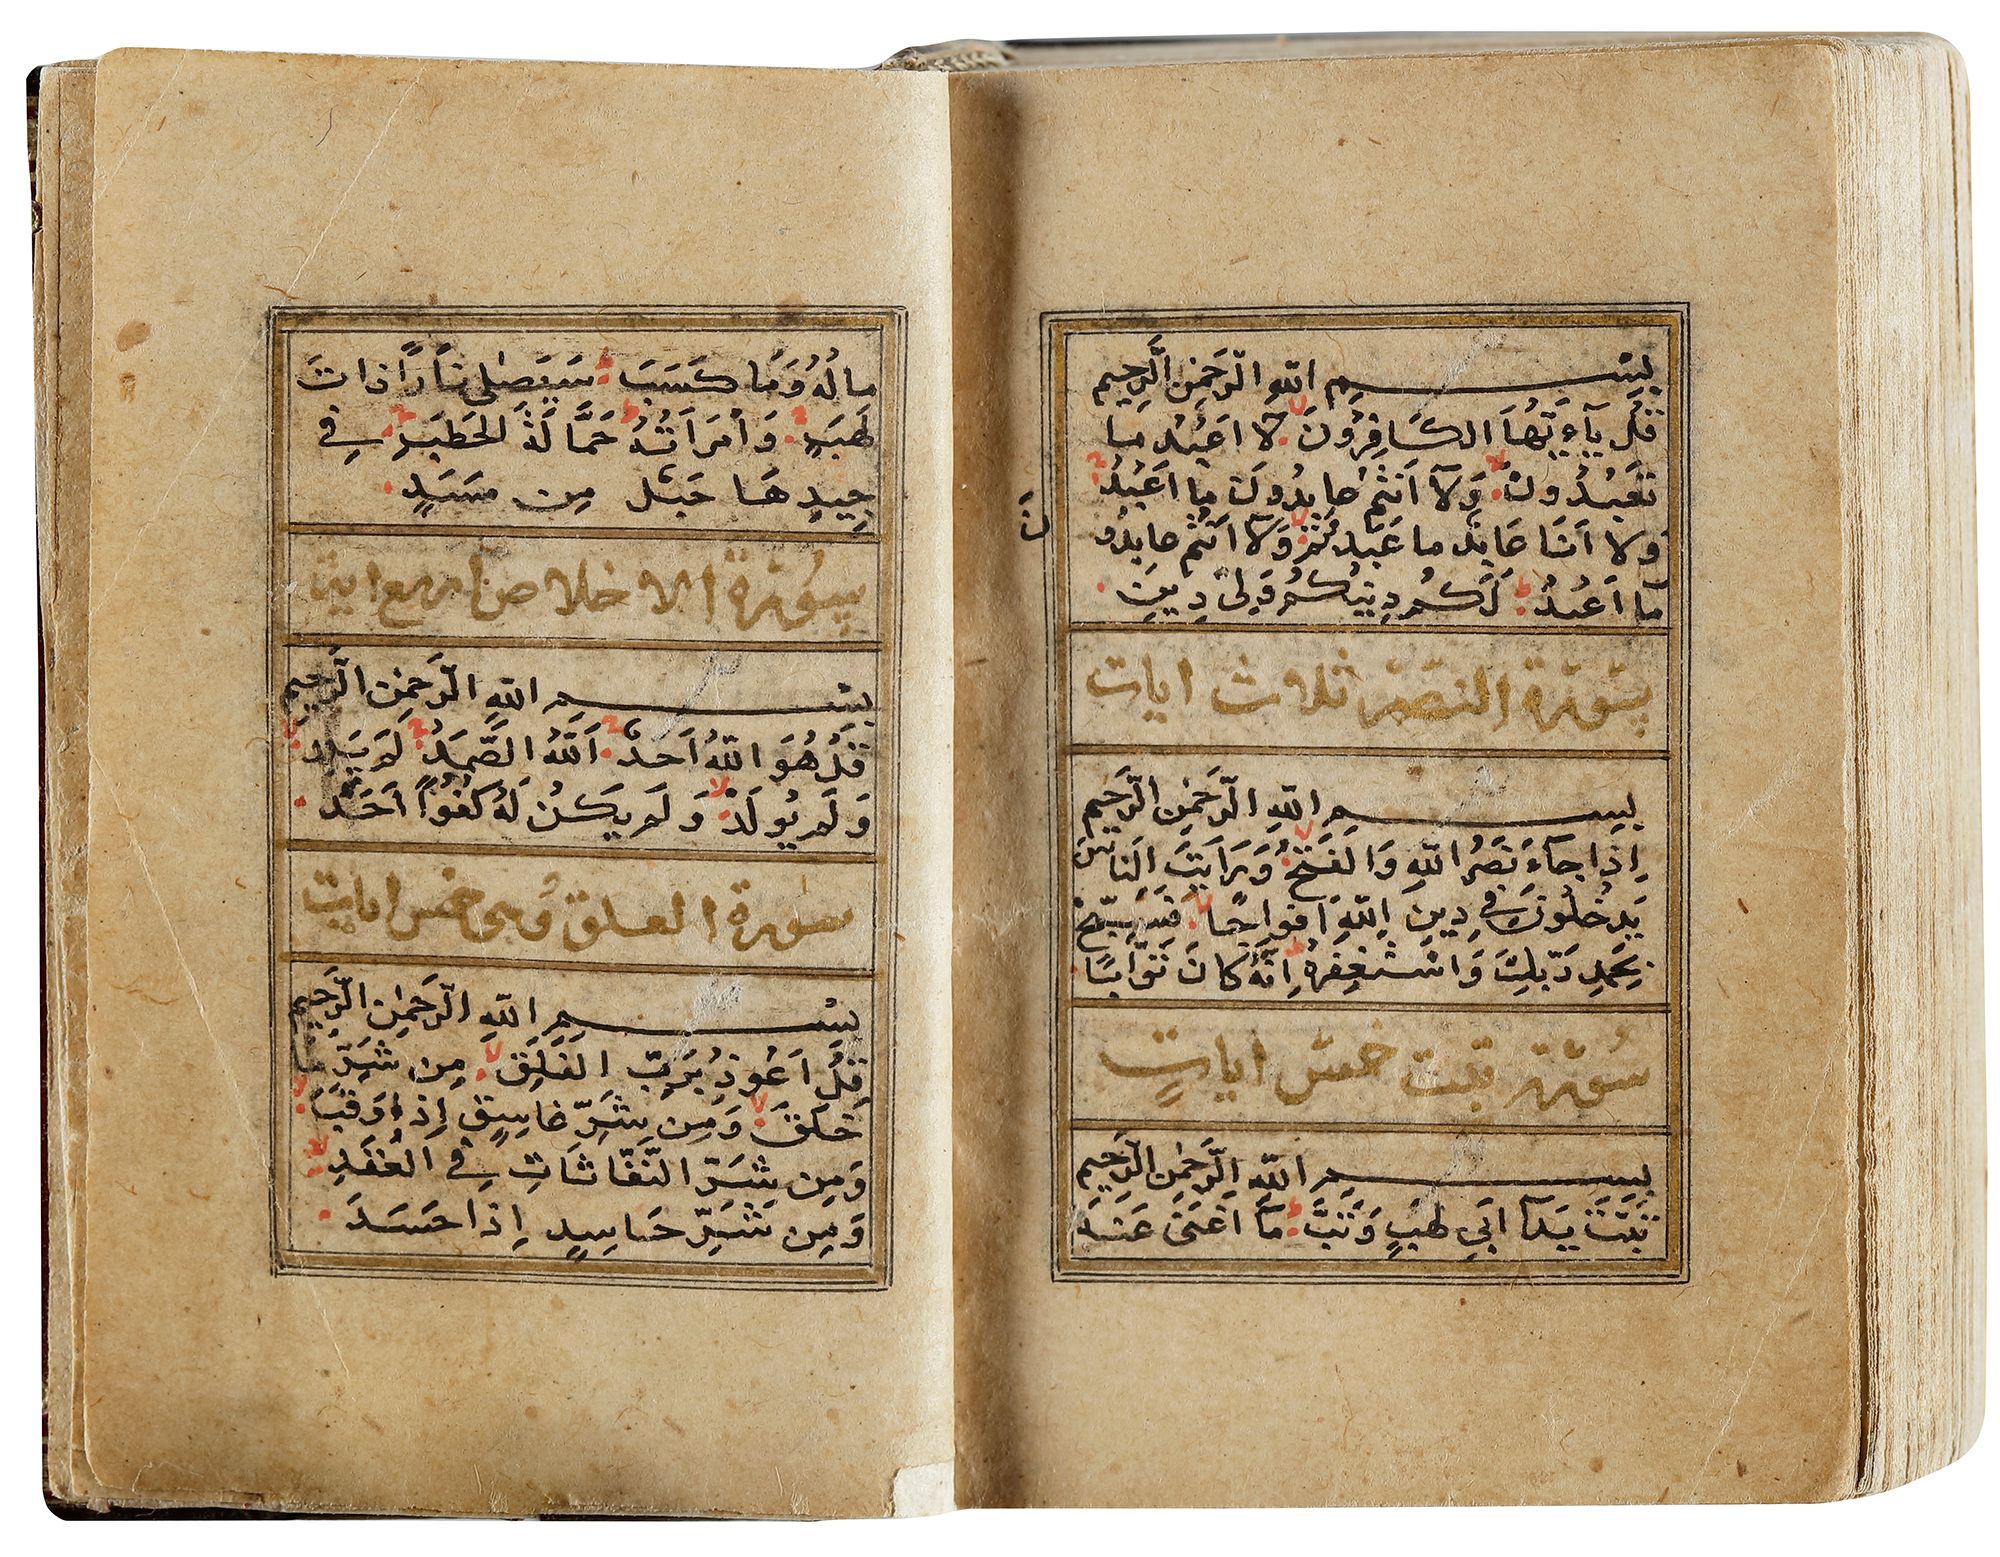 بِسْمِ اللهِ الرَّحْمٰنِ الرَّحِيمِ
قُلْ يَآءَيُّهَا الكَافِرُونَ لَا اَعْبُدُ مَا
تَعْبُدُونَ وَلَآ اَنْتُمْ عَابِدُونَ مَا اَعْبُدُ
وَلَا اَنَا عَابِدٌ مَا عَبَدْتُمْ وَلَآ اَنْتُمْ عَابِدُو
نَ
مَآ اَعْبُدُ لَكُمْ دِينُكُمْ وَلِىَ دِينِ
سُورَة النصر ثلاث ايات
بِسْمِ اللهِ الرَّحْمٰنِ الرَّحِيمِ
اِذَا جَآءَ نَصْرُ اللهِ وَالفَتْحُ وَرَاَيْتَ النَّاسَ
يَدْخُلُونَ فِى دِينِ اللهِ اَفْوَاجًا فَسَبِّحْ
بِحَمْدِ رَبِّكَ وَاسْتَغْفِرْهُ اِنَّهُ كَانَ تَوَّابًا
سُورَة تبت خمس اياتٍ
بِسْمِ اللهِ الرَّحْمٰنِ الرَّحِيمِ
تَبَّتْ يَدَآ اَبِي لَهَبٍ وَتَبَّ مَآ اَغْنَىٰ عَنْهُ
مَالُهُ وَمَا كَسَبَ سَيَصْلٰى نَارًا ذَاتَ
لَهَبٍ وَامْرَاَتُهُ حَمَّالَةَ الحَطَبِ فِي
جِيدِهَا حَبْلٌ مِن مَسَدٍ
سُورَة الاخلاص اربع ايت
بِسْمِ اللهِ الرَّحْمٰنِ الرَّحِيمِ
قُلْ هُوَ اللهُ اَحَدٌ اَللهُ الصَّمَدُ لَمْ يَلِدْ
وَلَمْ يُولَدْ وَلَمْ يَكُنْ لَهُ كُفُوًا اَحَدٌ
سورة العلق وهى خمس ايات
بِسْمِ اللهِ الرَّحْمٰنِ الرَّحِيمِ
قُلْ اَعُوذُ بِرَبِّ الفَلَقِ مِن شَرِّ مَا
خَلَقَ وَمِن شَرِّ غَاسِقٍ اِذَا وَقَبَ
وَمِن شَرِّ النَّفَّاثَاتِ فِي العُقَدِ
وَمِن شَرِّ حَاسِدٍ اِذَا حَسَدَ